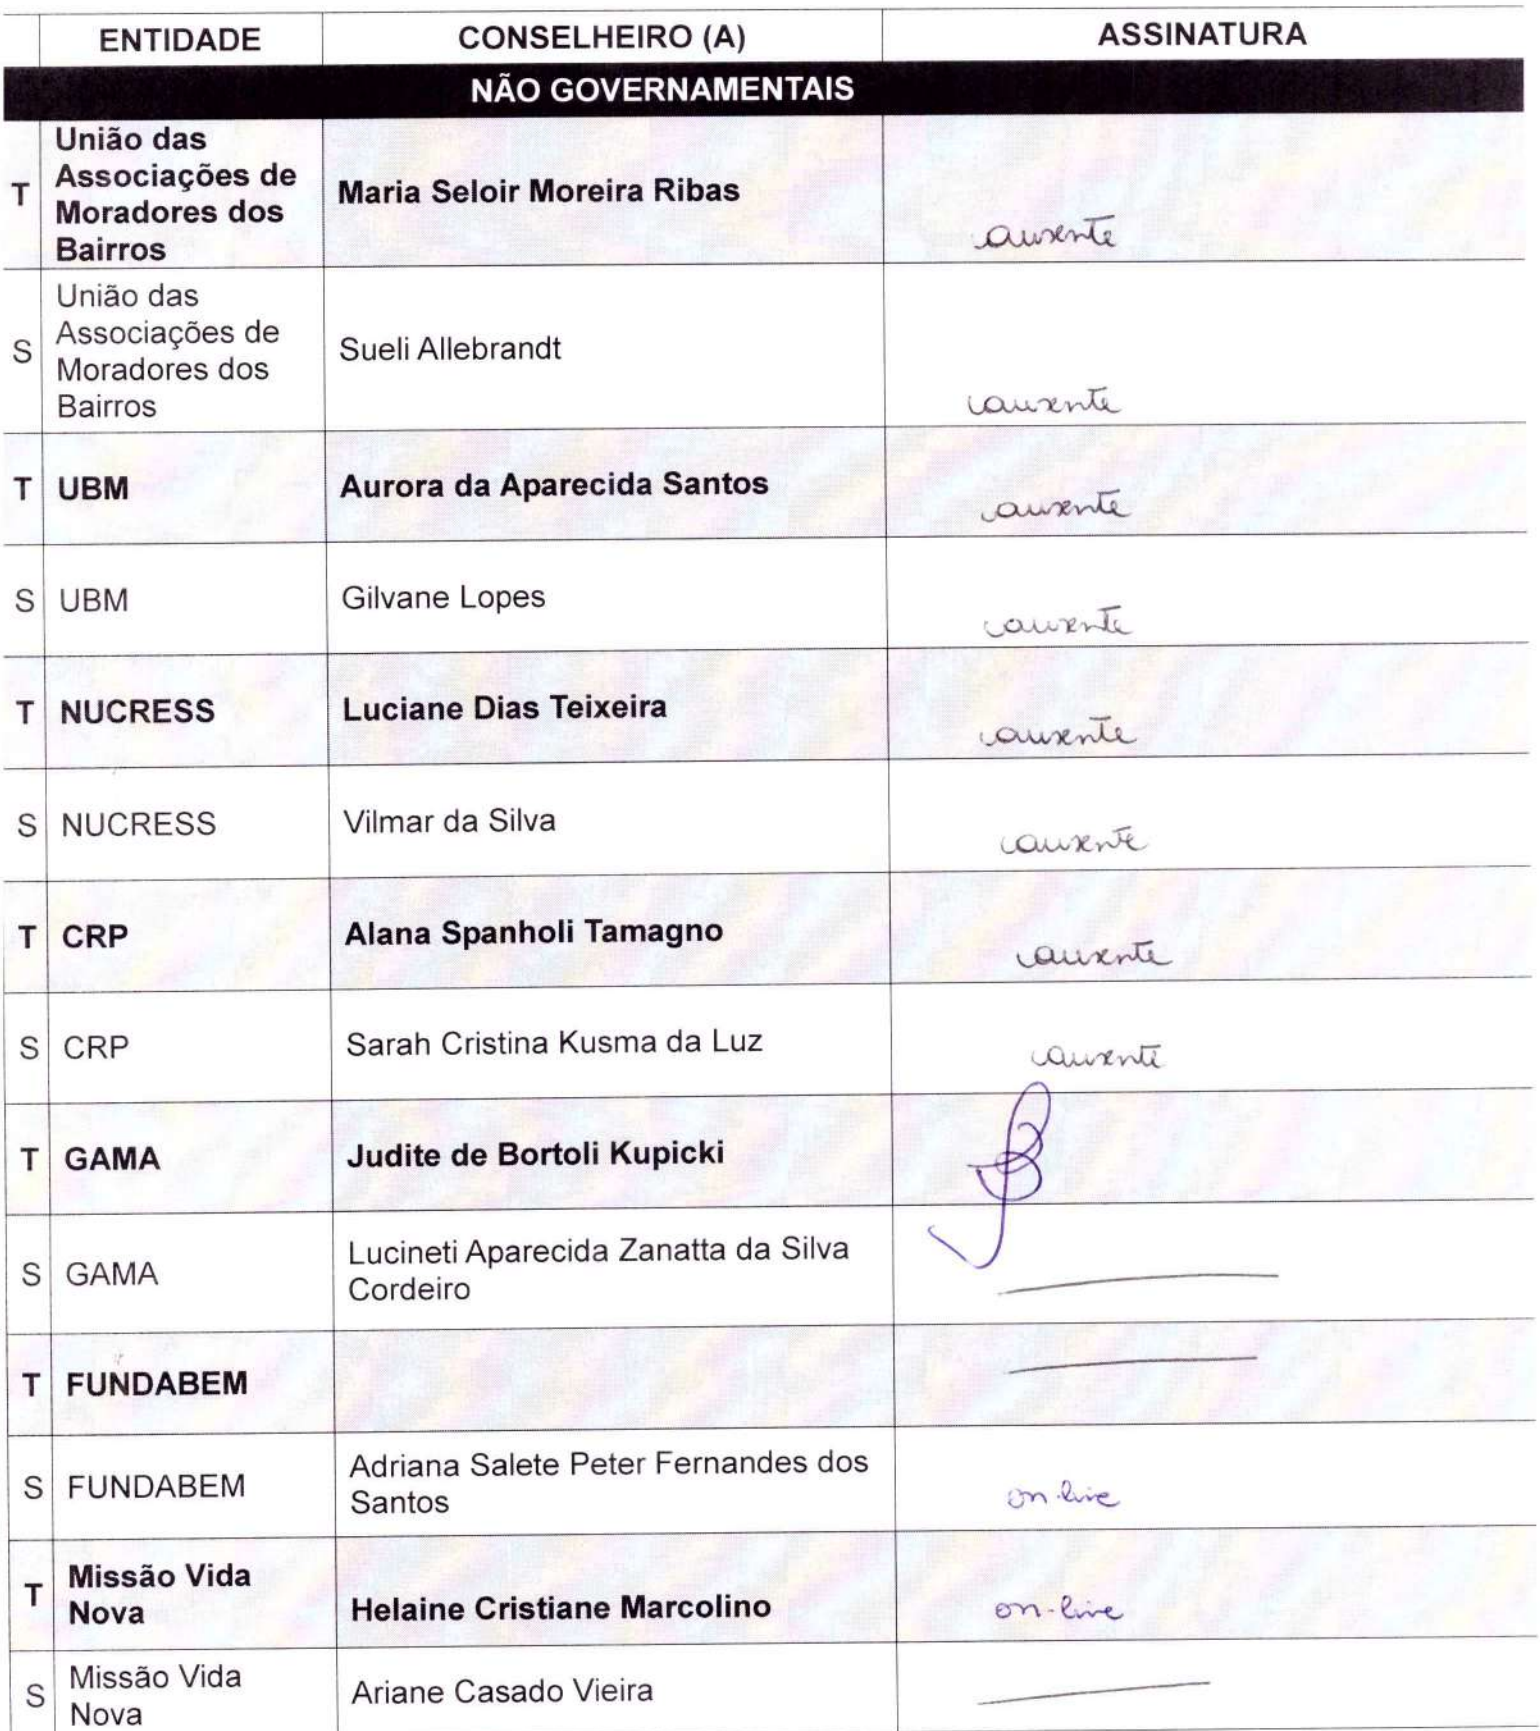 ENTIDADE CONSELHEIRO (A) ASSINATURA
NÃO GOVERNAMENTAIS
União das
Associações de
T Moradores dos Maria Seloir Moreira Ribas ausente
Bairros
União das
Associações de
S Moradores dos Sueli Allebrandt ausente
Bairros
T UBM Aurora da Aparecida Santos ausente
S UBM Gilvane Lopes ausente
T NUCRESS Luciane Dias Teixeira ausente
S NUCRESS Vilmar da Silva ausente
T CRP Alana Spanholi Tamagno ausente
S CRP Sarah Cristina Kusma da Luz ausente
T GAMA Judite de Bortoli Kupicki
S GAMA Lucineti Aparecida Zanatta da Silva
Cordeiro
T FUNDABEM
S FUNDABEM Adriana Salete Peter Fernandes dos
Santos on-line
T Missão Vida
Nova Helaine Cristiane Marcolino on-line
S Missão Vida
Nova Ariane Casado Vieira